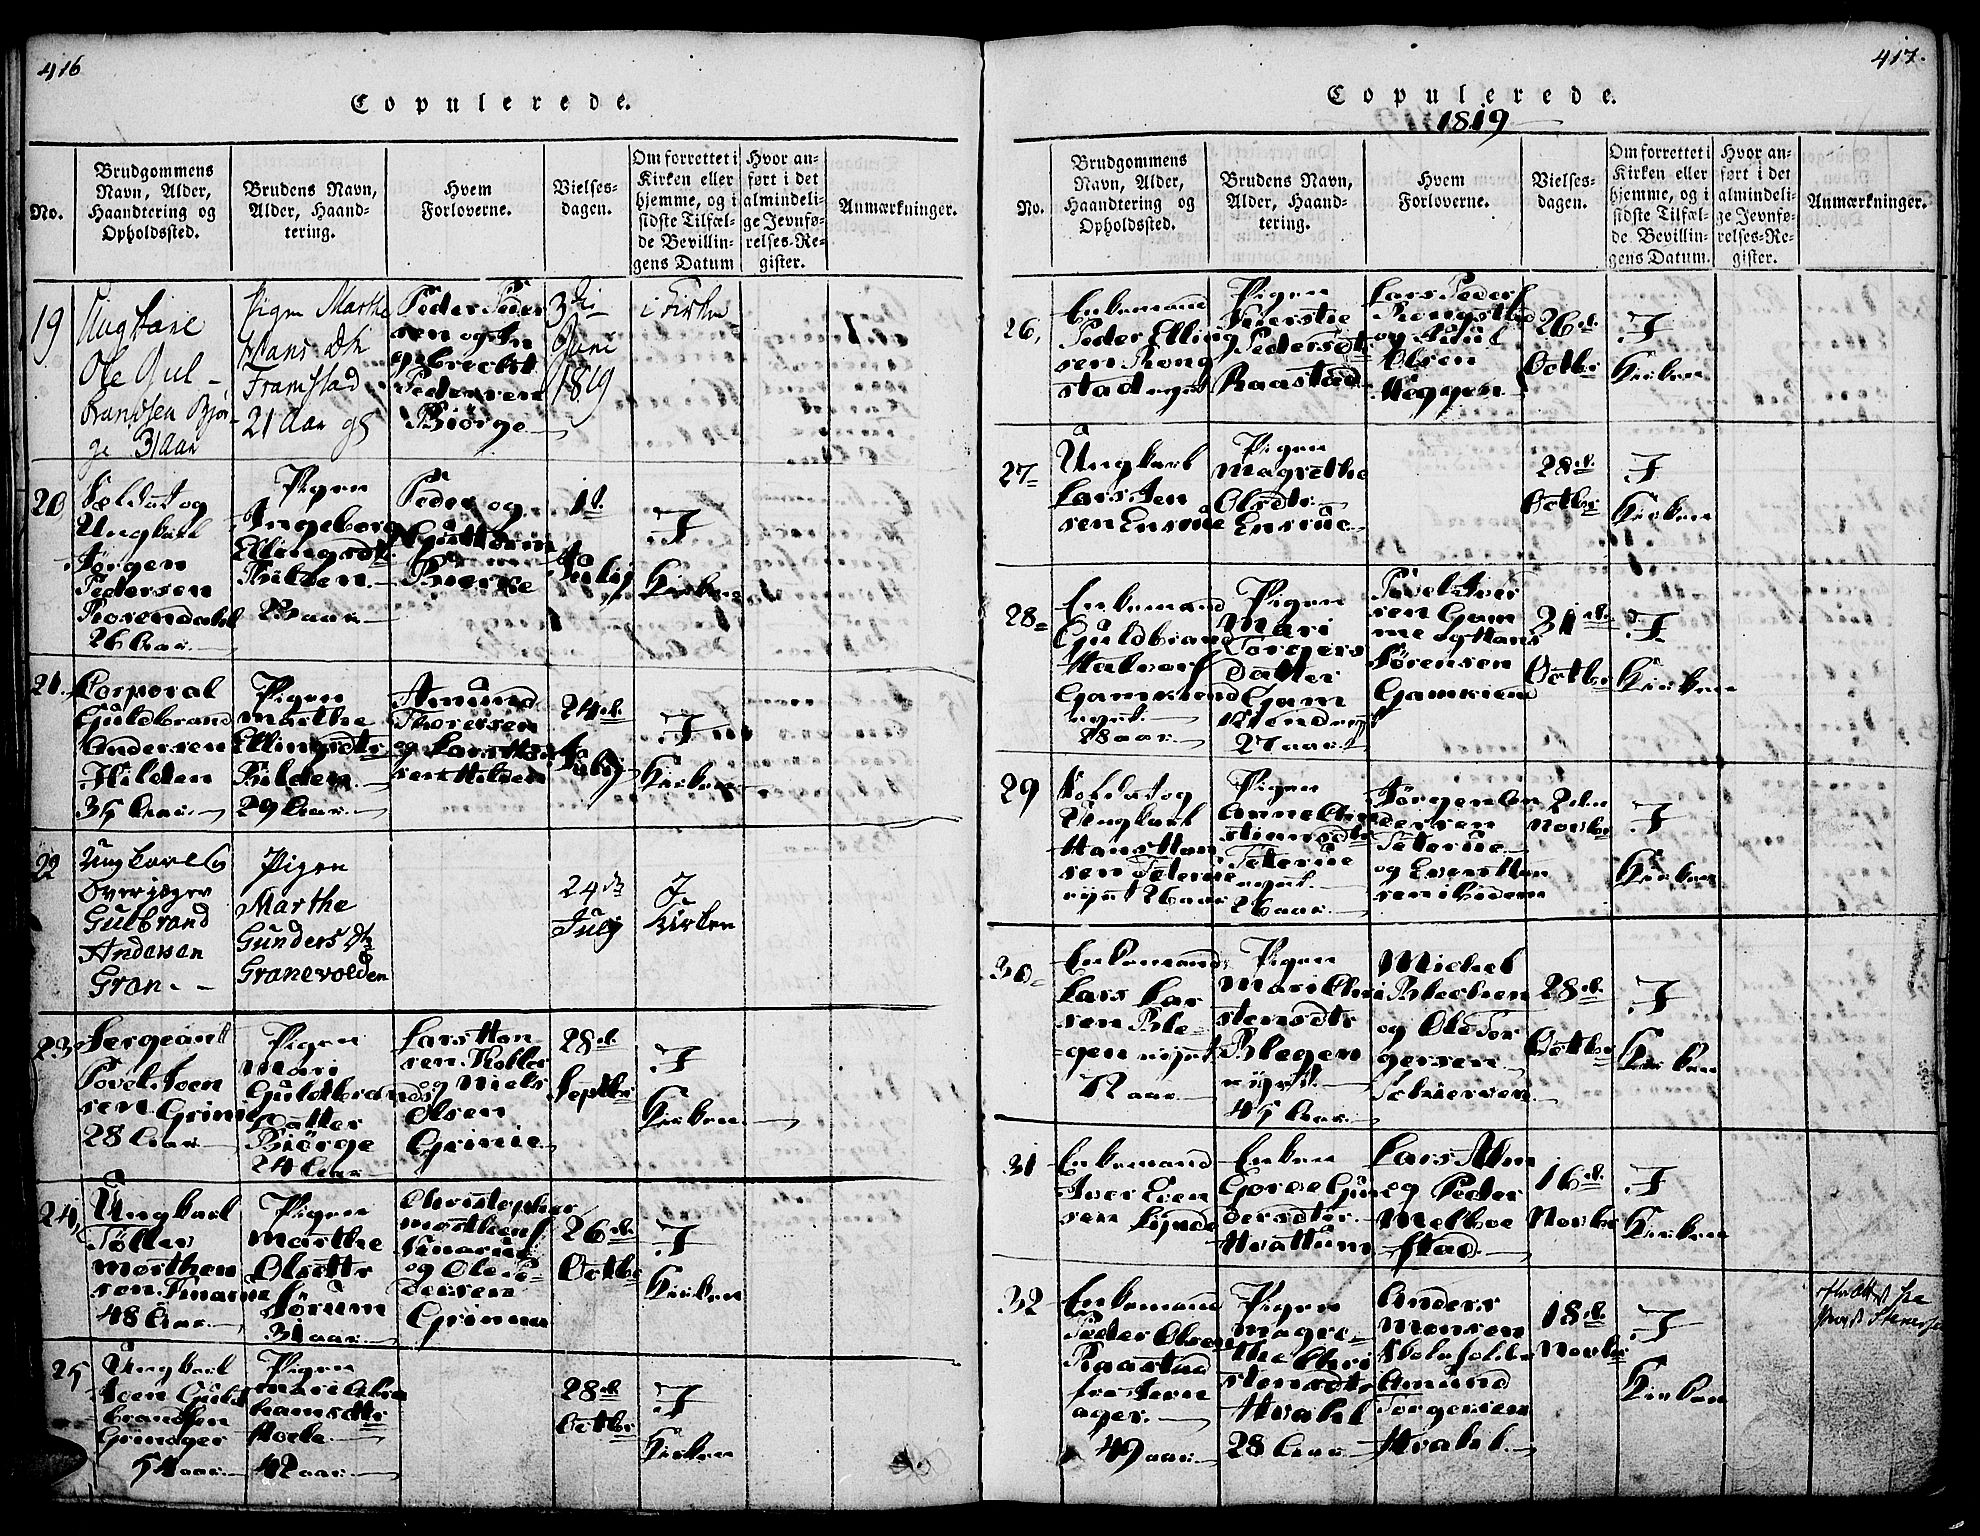 416
Copulerede.
No.
Brudgommens
Navn, Alder,
Haandtering og
Opholdssted.
Brudens Navn,
Alder, Haand-
tering.
Hvem
Forloverne.
Vielses-
dagen.
Om forrettet i
Kirken eller
hjemme, og i
sidste Tilfæl-
de Bevillin-
gens Datum
Hvor an-
ført i det
almindeli-
ge Jevnfø-
relses-Re-
gister.
Anmærkninger.
19
Ungkarl
Ole Gul-
brandsen Bjør-
ge 31 aar
Pigen Marthe
Hans Dtr
Framstad
21 Aar
Peder Peder
sen og In
gebrecht
Pedersen
Biørge
3die
Juni
1819
i Kirken
20
Soldat og
Ungkarl
Jørgen
Pedersen
Rosendahl
26 Aar
Pigen
Ingeborg
Ellingsdtr
Hilden
23 aar
Peder og
Guttorm
Bierke
1ste
Julij
I
Kirken
21.
Korporal
Guldbrand
Andersen
Hilden
35 Aar
Pigen
Marthe
Ellingsdtr
Hilden
29 Aar
Amund
Thoresen
og Lars Han
sen Hilden
24de
Julij
I
Kirken
22
Ungkarl og
Overjæger
Gulbrand
Andersen
Gran
Pigen
Marthe
Gunders Dtr
Granevolden
24de
July
I
Kirken
23
Sergeant
Povel Joen
sen Grinie
28 Aar
Pigen
Mari
Guldbrands
datter
Biørge
24 Aar
Lars Han
sen
og Niels
Olsen
Grinie
28de
Septbr
I
Kirken
24,
Ungkarl
Tøller
Morthen
sen
48 Aar
Pigen
Marthe
Olsdttr
Sørum
31 aar
Christopher
Morthens
og Ole Pe
dersen
Grinna
26de
Octbr
I
Kirken
25
Ungkarl
Joen Guld
brandsen
Grinager
54 aar
Pigen
Mari Abra
hamsdttr
Hoele
42 aar
28de
Octbr
I
Kirken
417.
Copulerede.
1819
No.
Brudgommens
Navn, Alder,
Haandtering og
Opholdssted.
Brudens Navn,
Alder, Haand-
tering.
Hvem
Forloverne.
Vielses-
dagen.
Om forrettet i
Kirken eller
hjemme, og i
sidste Tilfæl-
de Bevillin-
gens Datum.
Hvor an-
ført i det
almindeli-
ge Jevnfø-
relses-Re-
gister.
Anmærkninger.
26,
Enkemand
Peder Elling
sen Rong
stad
Pigen
Kierstie
Pedersdtr
Raastad
Lars Peders
Rongstad
og Paul
Olsen
Heggen
26de
Octbr
I
Kirken
27
Ungkarl
Lars Jen
sen Ensrue
Pigen
Magrethe
Olsdtr
Ensrue
28de
Octbr
I
Kirken
28
Enkemand
Guldbrand
Halvors
Gamkiend
28 aar
Pigen
Mari
Torgers
datter
Gam
kiend
27 aar
Povel Iver
sen Gam
me og Hans
Sørensen
Gamkiend
31de
Octbr
I
Kirken
29
Soldat og
Ungkarl
Hans Han
sen Teterue
26 aar
Pigen
Anne Chri
stiansdtr
Teterue
26 aar
Jørgen An
dersen
Teterue
og Even Han
sen ibidem
2den
Novbr
I
Kirken
30
Enkemand
Lars Lar
sen Ble
gen
72 aar
Pigen
Mari Chri
stensdtr
Blegen
45 Aar
Michel
Blechen
og Ole Tor
gersen
28de
Octbr
I
Kirken
31
Enkemand
Iver Even
sen Lynde
Enken
Goroe Gun
dersdtr
Hvattum
Lars Alm
og Peder
Melboe
stad
16de
Novbr
I
Kirken
32
Enkemand
Peder Olsen
Raastad
fra Jevn
ager
49 aar
Pigen
Magre-
the Chri
stensdtr
Hvahl
28 Aar
Anders
Monsen
Amund
Torgersen
Hvahl
18de
Novbr
I
Kirken